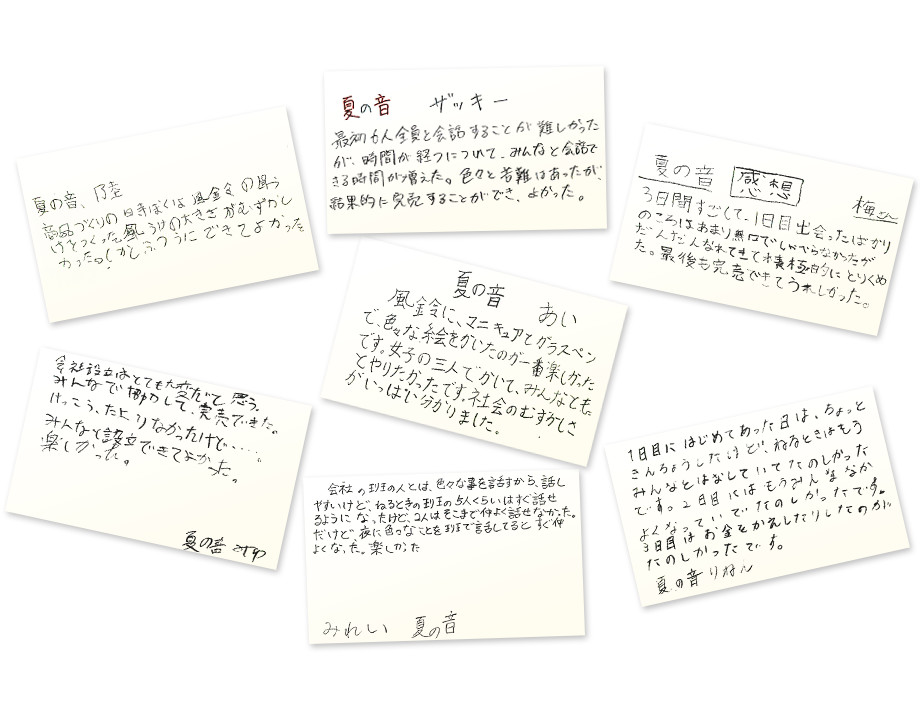 夏の音 ザッキー
最初6人全員と会話することが難しかった
が、時間が経つについて、みんなと会話で
きる時間が増えた。色々と苦難はあったが、
結果的に完売することができ、よかった。
夏の音、乃陸
商品づくりの時ぼくは風金令の周う
かったのしかしふつうにできてよかった
夏の音 感想
梅
3日間すごして、1日目出会ったばかり
のころはあまり無口でしゃべらなかったが
だんだんなれてきて積極的にとりくめ
た。最後も完売できてうれしかった。
夏の音
あい
風鈴に、マニキュアとガラスペン
で、色々な絵をかいたのが一番楽しかった
です。女子の三人でかいて、みんなとも
とやりたかったです。社会のむずかしさ
がいっぱい分かりました。
会社設立はとても大変だと思う。
みんなで協力して、完売できた。
けっこう、たよりなかったけど・・・・。
みんなと設立できてよかった。
楽しかった。
夏の音
会社の班の人とは、色々な事を話すから、話し
やすいけど、ねるときの班の5人くらいはすぐ話せ
るようになったけど、2人はそこまで仲よく話せなかった。
だけど、夜に色々なことを班で話してるとすぐ仲
よくなった。楽しかった
みれい 夏の音
1日目にはじめてあった日は、ちょっと
きんちょうしたけど、ねるときはもう
みんなとはなしていてたのしかった
です。2日目にはもうみんななか
よくなっていてたのしかったです。
3日目はお金をかえしたりしたのが
たのしかったです。
夏の音 りねん